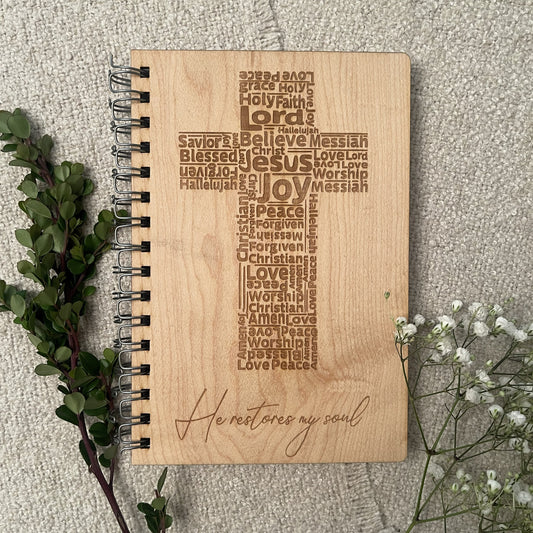 Love Peace
grace Holy
Holy Faith
Love Joy
Lord
Hallelujah
Savior's Believe Messiah
Blessed Christ Love Lord
Jesus
Forgiven Worship
Hallelujah Joy Messiah
Christ
Peace
Christian
Hallelujah
Forgiven
Messiah
Forgiven
Christian
Love
Amen
Worship
Love Peace
Amen Love
Love Peace
Worship
Blessed
Amen
Love Peace
He restores my soul